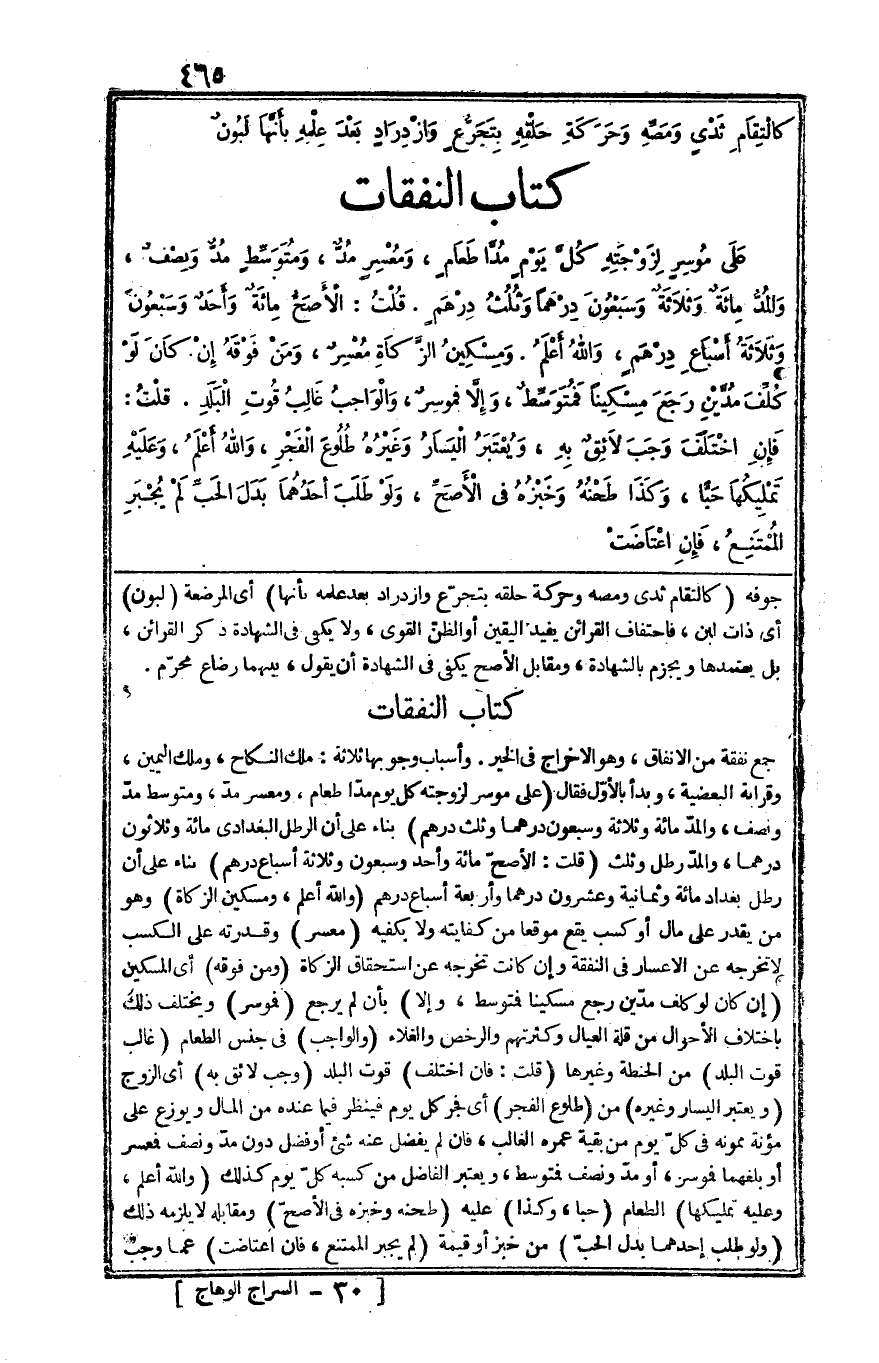 ٤٦٥
كَالْتِقَامِ ثَدْيٍ وَمَصِّهِ وَحَرَكَةِ حَلْقِهِ بِتَجَرُّعٍ وَازْدِرَادٍ بَعْدَ عِلْمِهِ بِأَنَّهَا لَبُونٌ
كتاب النفقات
عَلَى مُوسِرٍ لِزَوْجَتِهِ كُلَّ يَوْمٍ مُدَّا طَعَامٍ ، وَمُعْسِرٍ مُدٌّ ، وَمُتَوَسِّطٍ مُدٌّ وَنِصْفٌ ،
وَالْمُدُّ مِائَةٌ وَثَلَاثَةٌ وَسَبْعُونَ دِرْهَماً وَثُلُثُ دِرْهَمٍ . قُلْتُ : الْأَصَحُّ مِائَةٌ وَأَحَدٌ وَسَبْعُونَ
وَثَلَاثَةُ أَسْبَاعِ دِرْهَمٍ ، وَاللهُ أَعْلَمُ . وَمِسْكِينُ الزَّكَاةِ مُعْسِرٌ ، وَمَنْ فَوْقَهُ إِنْ كَانَ لَوْ
كُلِّفَ مُدَّيْنِ رَجَعَ مِسْكِيناً فَمُتَوَسِّطٌ ، وَإِلَّا فَمُوسِرٌ ، وَالْوَاجِبُ غَالِبُ قُوتِ الْبَلَدِ . قلْتُ :
فَإِنِ اخْتَلَفَ وَجَبَ لَائِقٌ بِهِ ، وَيُعْتَبَرُ الْيَسَارُ وَغَيْرُهُ طُلُوعَ الْفَجْرِ ، وَاللهُ أَعْلَمُ ، وَعَلَيْهِ
تَمْلِيكُهَا حَبًّا ، وَكَذَا طَحْنُهُ وَخَبْزُهُ فى الْأَصَحِّ ، وَلَوْ طَلَبَ أَحَدُهُمَا بَدَلَ الحَبِّ لَمْ يُجْبَرِ
المُمْتَنِعُ ، فَإِنِ اعْتَاضَتْ
جوفه (كالتقام ثدى ومصه وحركة حلقه بتجرّع وازدراد بعد علمه بأنها) أى المرضعة (لبون)
أى ذات لبن ، فاحتفاف القرائن يفيد اليقين أو الظنّ القوى ، ولا يكفى فى الشهادة ذكر القرائن ،
بل يعتمدها ويجزم بالشهادة ، ومقابل الأصح يكفى فى الشهادة أن يقول ، بينهما رضاع محرّم .
كتاب النفقات
جمع نفقة من الانفاق ، وهو الاخراج فى الخير . وأسباب وجوبها ثلاثة : ملك النكاح ، وملك اليمين ،
وقرابة البعضية ، وبدأ بالأوّل فقال (على موسر لزوجته كل يوم مدّا طعام ، ومعسر مدّ ، ومتوسط مدّ
ونصف ، والمدّ مائة وثلاثة وسبعون درهما وثلث درهم) بناء على أن الرطل البغدادى مائة وثلاثون
درهما ، والمدّ رطل وثلث (قلت : الأصحّ مائة وأحد وسبعون وثلاثة أسباع درهم) بناء على أن
رطل بغداد مائة وثمانية وعشرون درهما وأربعة أسباع درهم (والله أعلم ، ومسكين الزكاة) وهو
من يقدر على مال أو كسب يقع موقعا من كفايته ولا يكفيه (معسر) وقدرته على الكسب
لا تخرجه عن الاعسار فى النفقة وإن كانت تخرجه عن استحقاق الزكاة (ومن فوقه) أى المسكين
(إن كان لو كلف مدّين رجع مسكينا فمتوسط ، وإلا) بأن لم يرجع (فموسر) ويختلف ذلك
باختلاف الأحوال من قلة العيال وكثرتهم والرخص والغلاء (والواجب) فى جنس الطعام (غالب
قوت البلد) من الحنطة وغيرها (قلت : فان اختلف) قوت البلد (وجب لائق به) أى الزوج
(ويعتبر اليسار وغيره) من (طلوع الفجر) أى فجر كل يوم فينظر فيما عنده من المال ويوزع على
مؤنة ممونه فى كلّ يوم من بقية عمره الغالب ، فان لم يفضل عنه شئ أو فضل دون مدّ ونصف فمعسر
أو بلغهما فموسر ، أو مدّ ونصف فمتوسط ، ويعتبر الفاضل من كسبه كلّ يوم كذلك (والله أعلم ،
وعليه تمليكها) الطعام (حبا ، وكذا) عليه (طحنه وخبزه فى الأصحّ) ومقابله لا يلزمه ذلك
(ولو طلب إحدهما بدل الحبّ) من خبز أو قيمة (لم يجبر الممتنع ، فان اعتاضت) عما وجب
[ ٣٠ - السراج الوهاج ]